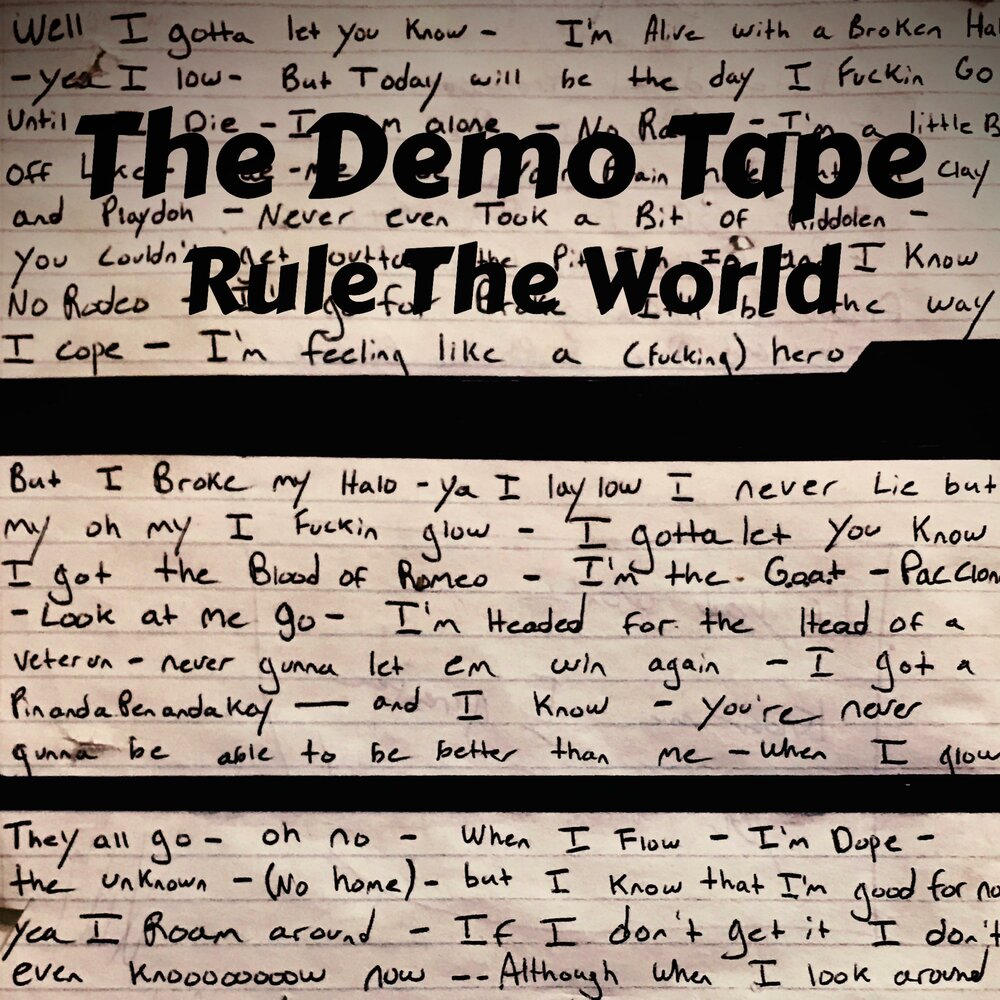 Well I gotta let you know - I'm Alive with a Broken Hal
- yea I low - But Today will be the day I Fuckin Go
Until Die - I alone - No - I'm a little B
The Demo Tape
off clay
and Playdoh - Never even Took a Bit of Riddolen -
you couldn't I Know
Rule The World
No Rodeo - go for the way
I cope - I'm feeling like a (fucking) hero
But I Broke my Halo - ya I lay low I never Lie but
my oh my I Fuckin glow - I gotta let you Know
I got the Blood of Romeo - I'm the G.o.a.t - Pac Clon
- Look at me go - I'm Headed for the Head of a
veterun - never gunna let em win again - I got a
Pin anda Pen anda Kay — and I know - you're never
gunna be able to be better than me - when I glow
They all go - oh no - when I Flow - I'm Dope -
the unknown - (No home) - but I know that I'm good for no
yea I Roam around - If I don't get it I don't
even knooooooow now -- Although when I look around